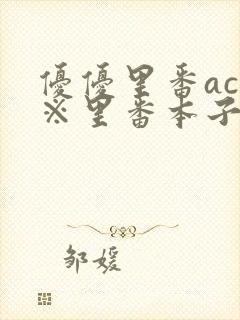 優優里番ac
※里番本子
邹媛